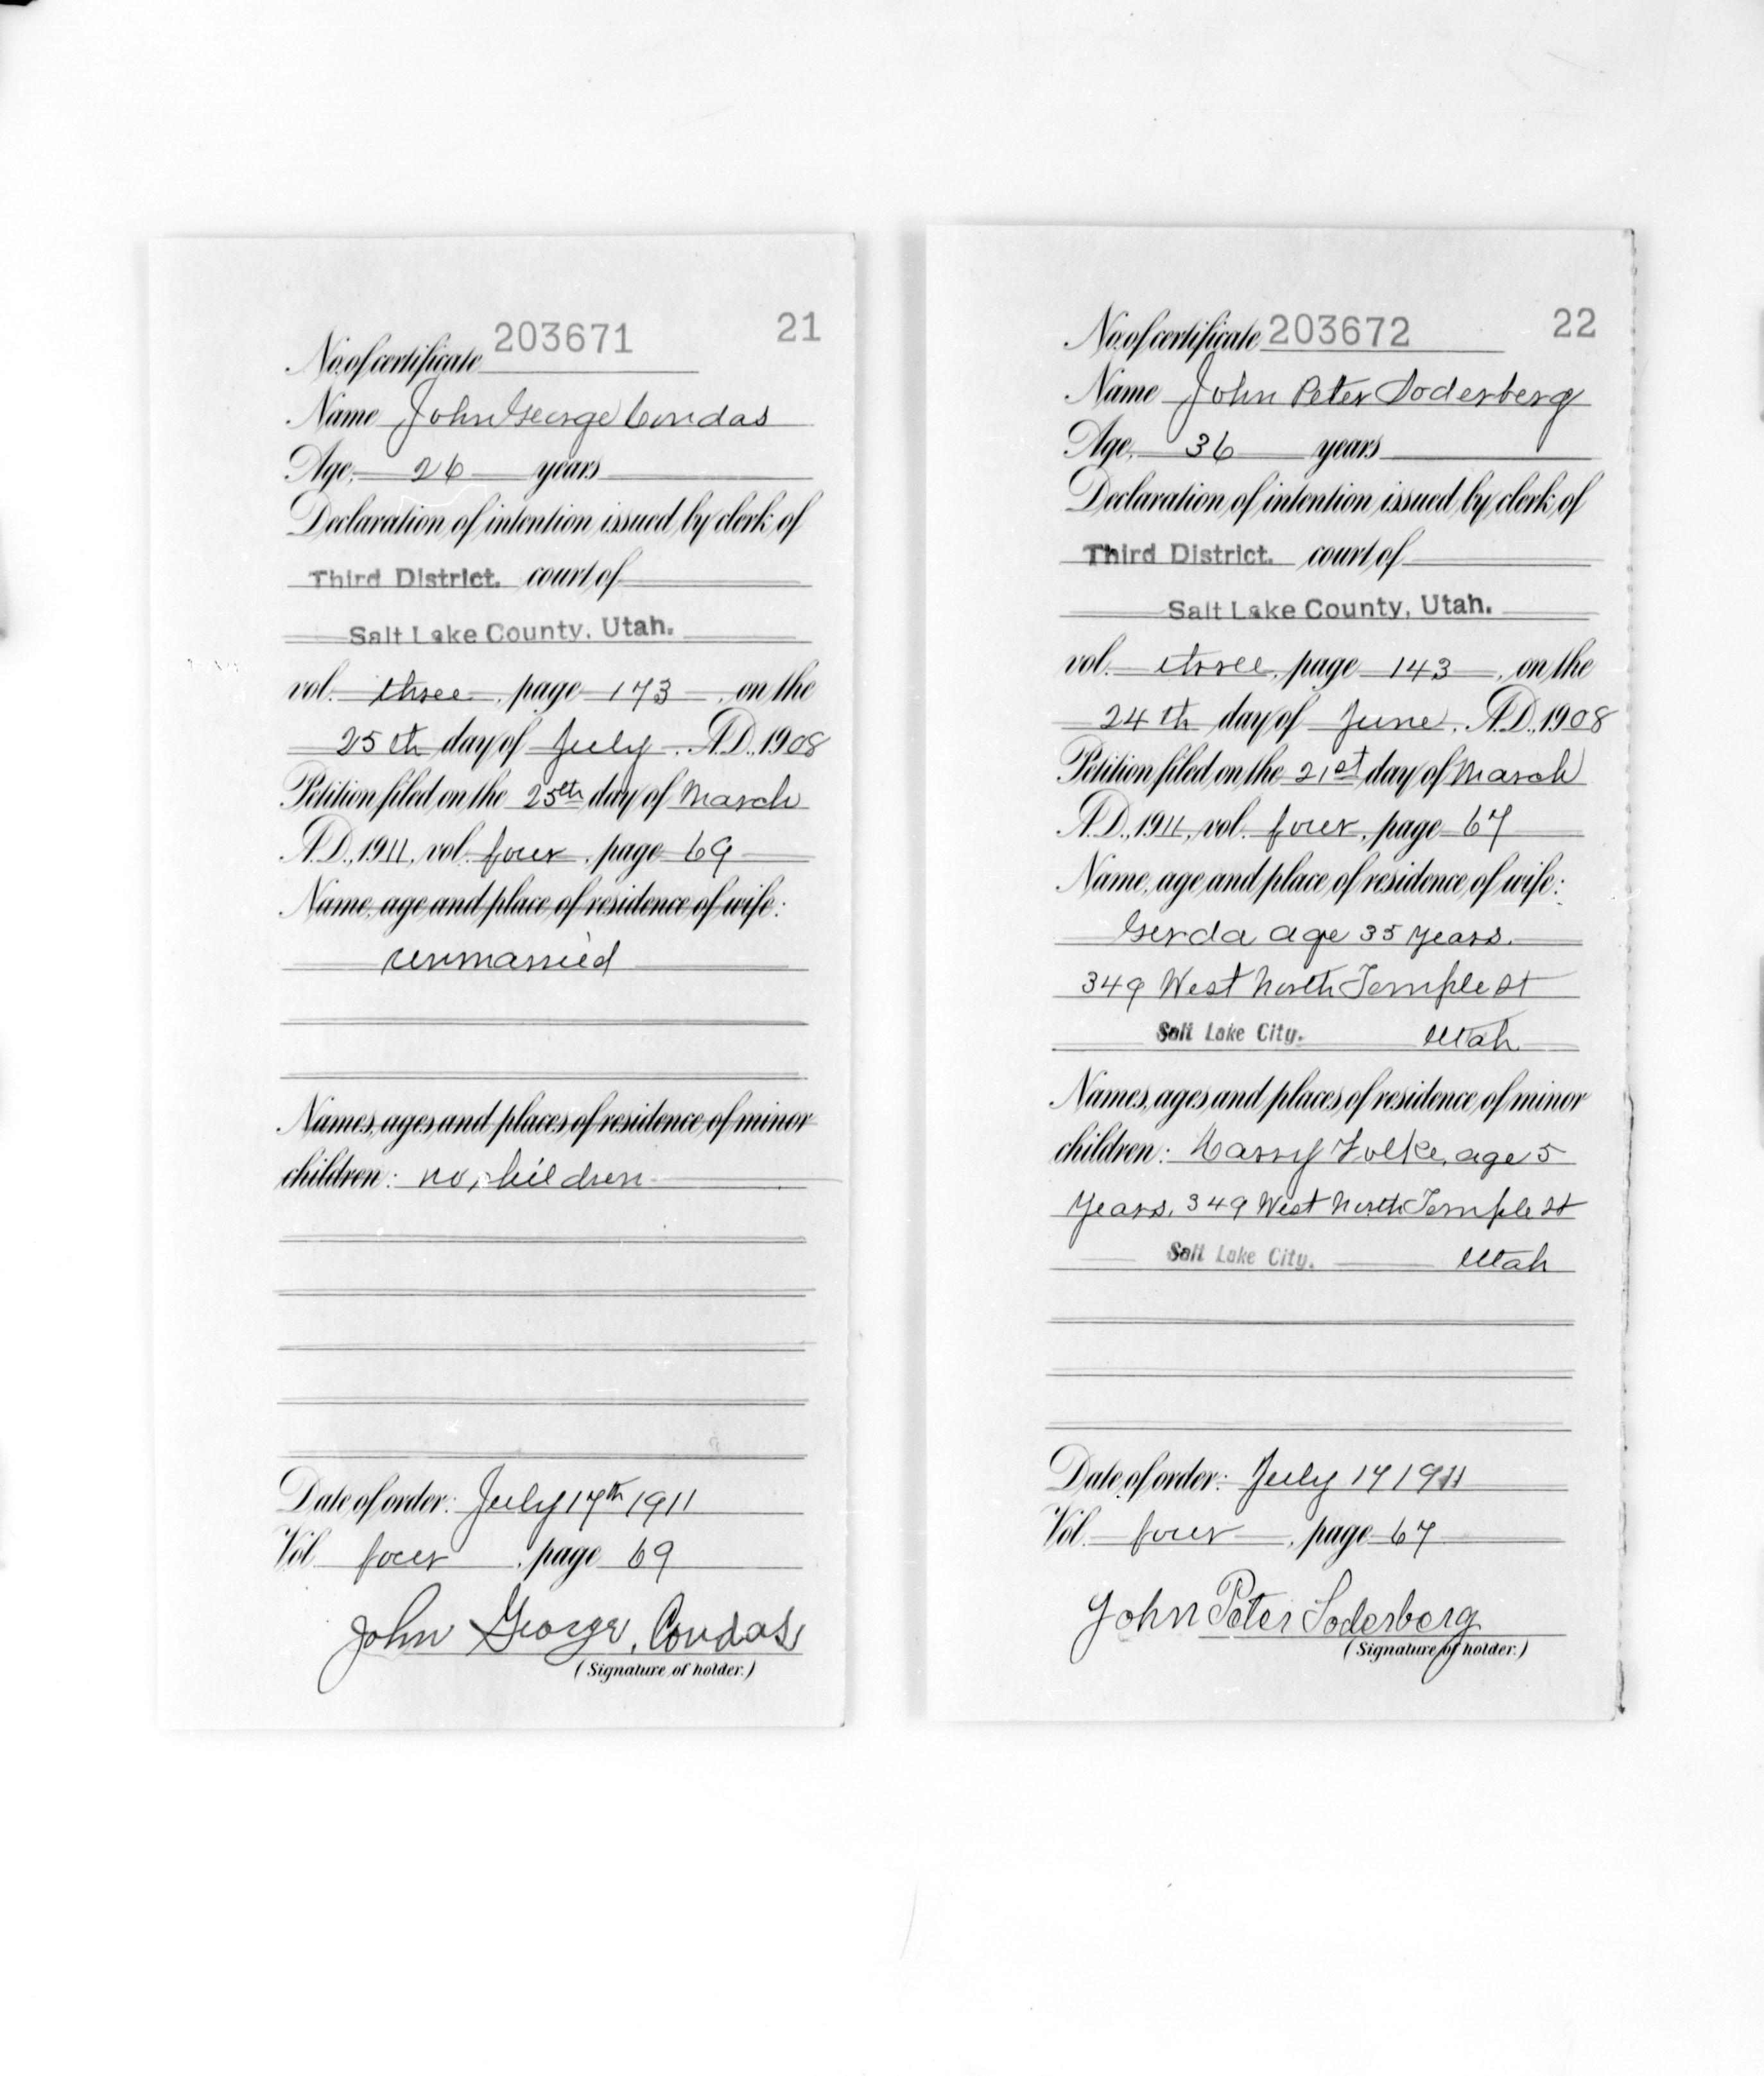 21
No. of certificate 203671
Name John George Condas
Age, 26 years
Declaration of intention issued by clerk of
Third District. court of
Salt Lake County, Utah.
vol. three, page 173, on the
25th day of July, A.D., 1908
Petition filed on the 25th day of March
A.D., 1911, vol. four, page 69
Name, age and place of residence of wife:
unmarried
Names, ages and places of residence of minor
children: no children
Date of order: July 17th 1911
Vol. four, page 69
John George, Condas
(Signature of holder.)
22
No. of certificate 203672
Name John Peter Soderberg
Age, 36 years
Declaration of intention issued by clerk of
Third District. court of
Salt Lake County, Utah.
vol. three, page 143, on the
24th day of June, A.D., 1908
Petition filed on the 21st day of March
A.D., 1911, vol. four, page 67
Name, age and place of residence of wife:
Gerda age 35 years.
349 West North Temple St
Salt Lake City. Utah
Names, ages and places of residence of minor
children: Harry Folke, age 5
years, 349 West North Temple St
Salt Lake City. Utah
Date of order: July 17 1911
Vol. four, page 67
John Peter Soderberg
(Signature of holder.)